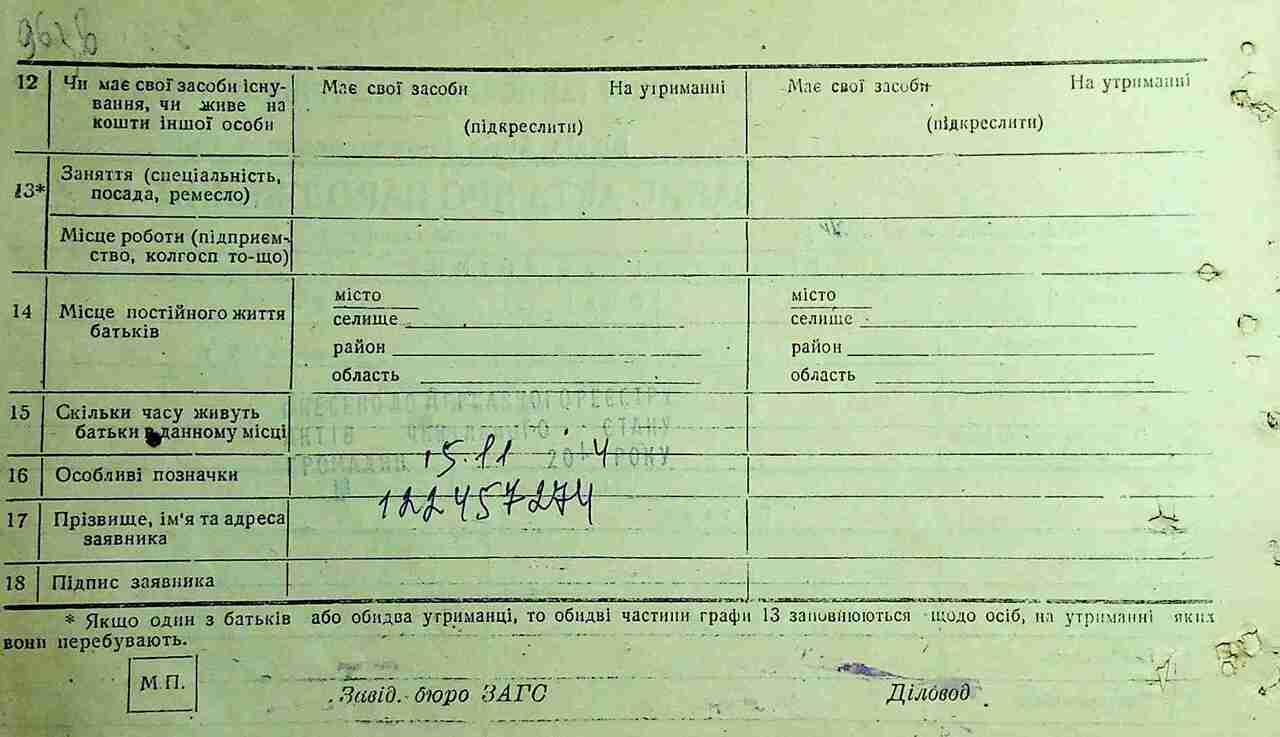 12 Чи має свої засоби існу- Має свої засоби На утриманні Має свої засоби На утриманні
вання, чи живе на
кошти іншої особи (підкреслити) (підкреслити)
13* Заняття (спеціальність,
посада, ремесло)
Місце роботи (підприєм-
ство, колгосп то-що)
14 Місце постійного життя
батьків
місто місто
селище селище
район район
область область
15 Скільки часу живуть
батьки в данному місці
ВНЕСЕНО ДО ДЕРЖАВНОГО РЕЄСТРУ
АКТІВ ЦИВІЛЬНОГО СТАНУ
ГРОМАДЯН 15.11 2014 РОКУ
16 Особливі позначки
122457274
17 Прізвище, ім'я та адреса
заявника
18 Підпис заявника
* Якщо один з батьків або обидва утриманці, то обидві частини графи 13 заповнюються щодо осіб, на утриманні яких
вони перебувають.
М.П. Завід. бюро ЗАГС Діловод